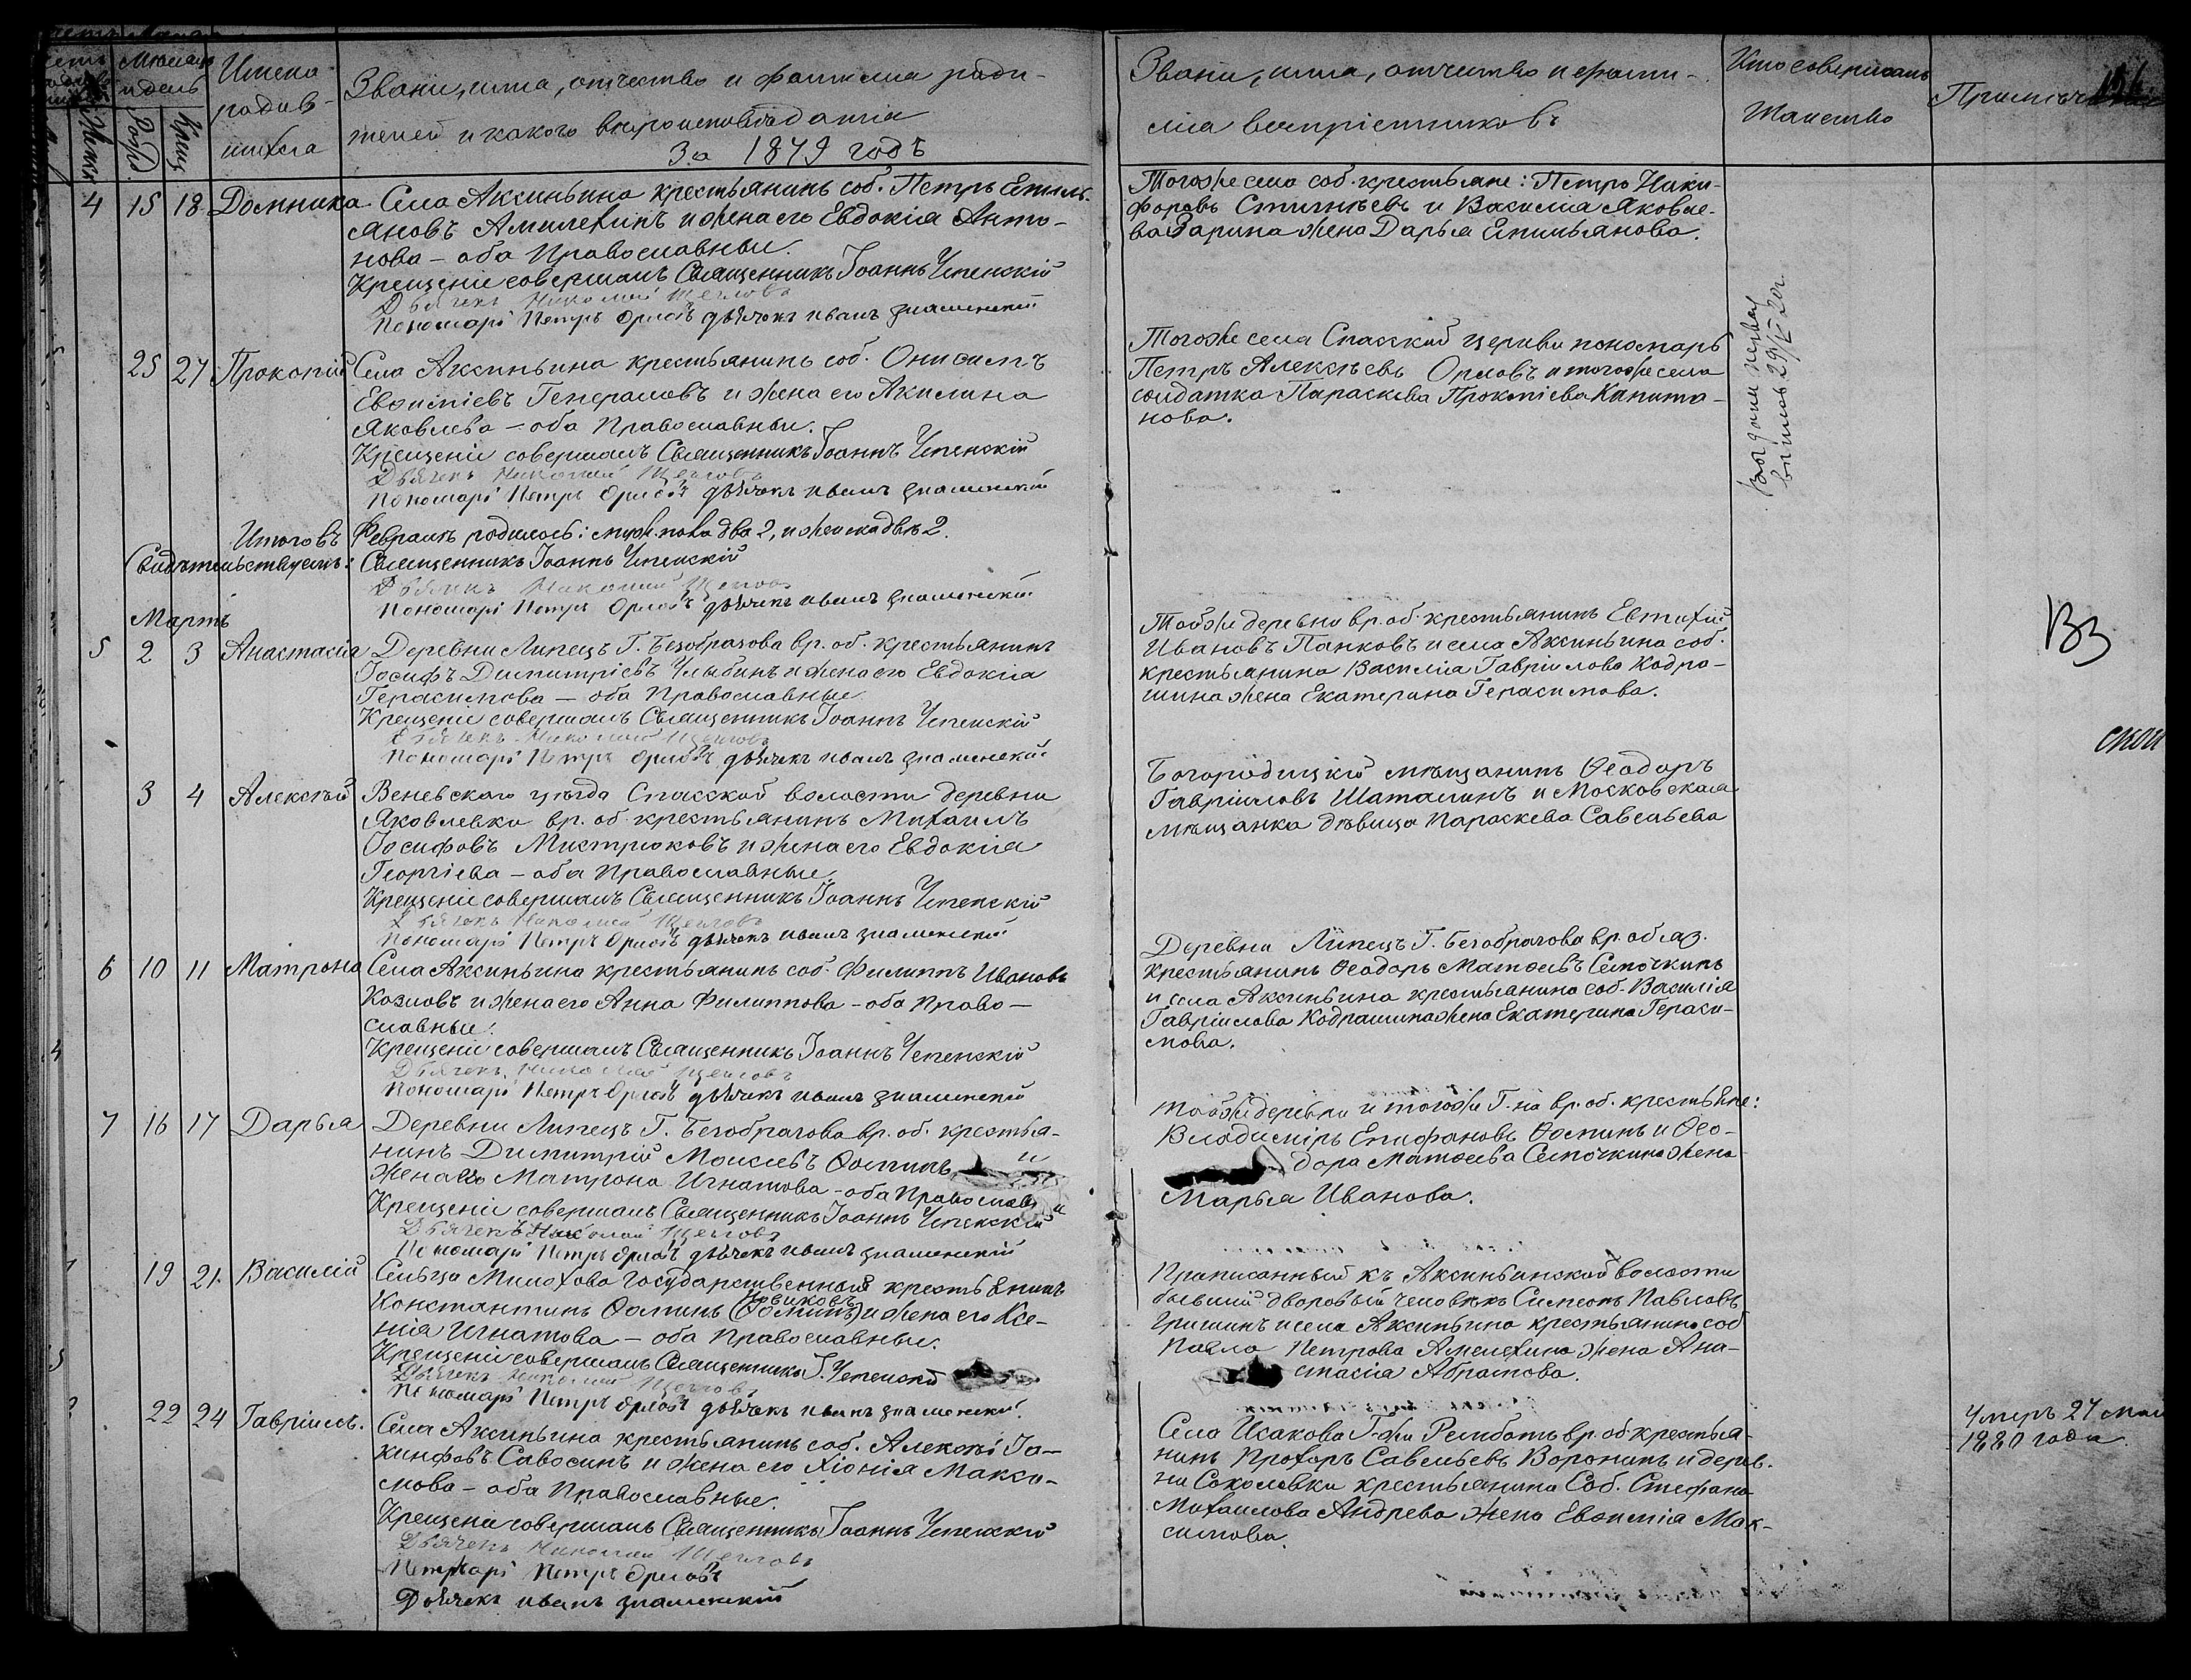 Мѣсяцъ
и день
Имена
родив-
шихся
Званіе, имя, отчество и фамилія роди-
телей и какого вѣроисповѣданія
За 1879 годъ
Званіе, имя, отчество и фами-
лія воспріемниковъ
Кто совершалъ
таинство
4 15 18 Домника
Села Аксиньина крестьянинъ соб. Петръ Емиль-
яновъ Амелехинъ и жена его Евдокія Анто-
нова – оба Православные.
Крещеніе совершалъ Священникъ Іоаннъ Успенскій
Дьячекъ Николай Щегловъ
Пономарь Петръ Орловъ дьячекъ иванъ знаменскій
Тогоже села соб. крестьяне: Петръ Ники-
форовъ Стигнѣевъ и Василія Яковле-
ва Зарина жена Дарья Емильянова.
25 27 Прокопій
Села Аксиньина крестьянинъ соб. Онисимъ
Евѳиміевъ Генераловъ и жена его Акилина
Яковлева – оба Православные.
Крещеніе совершалъ Священникъ Іоаннъ Успенскій
Дьячекъ Николай Щегловъ
Пономарь Петръ Орловъ дьячекъ иванъ знаменскій
Тогоже села Спасской церкви пономарь
Петръ Алексѣевъ Орловъ и тогоже села
солдатка Параскева Прокопіева Капита-
нова.
Итого въ Февралѣ родилось: муж. пола два 2, и женска двѣ 2.
Свидѣтельствуемъ: Священникъ Іоаннъ Успенскій
Дьячекъ Николай Щегловъ
Пономарь Петръ Орловъ дьячекъ иванъ знаменскій
Мартъ
5 2 3 Анастасія
Деревни Липецъ Г. Безобразова вр. об. крестьянинъ
Іосифъ Димитріевъ Улыбинъ и жена его Евдокія
Герасимова – оба Православные
Крещеніе совершалъ Священникъ Іоаннъ Успенскій
Дьячекъ Николай Щегловъ
Пономарь Петръ Орловъ дьячекъ иванъ знаменскій
Тойже деревни вр. об. крестьянинъ Евтихій
Ивановъ Панковъ и села Аксиньина соб.
крестьянина Василія Гавріилова Кодра-
шина жена Екатерина Герасимова.
3 4 Алексѣй
Веневскаго уѣзда Спасской волости деревни
Яковлевки вр. об. крестьянинъ Михаилъ
Іосифовъ Мистрюковъ и жена его Евдокія
Георгіева – оба Православные.
Крещеніе совершалъ Священникъ Іоаннъ Успенскій
Дьячекъ Николай Щегловъ
Пономарь Петръ Орловъ дьячекъ иванъ знаменскій
Богородицкій мѣщанинъ Ѳеодоръ
Гавріиловъ Шаталинъ и Московская
мѣщанка дѣвица Параскева Савельева
6 10 11 Матрона
Села Аксиньина крестьянинъ соб. Филиппъ Ивановъ
Козловъ и жена его Анна Филиппова – оба Право-
славные.
Крещеніе совершалъ Священникъ Іоаннъ Успенскій
Дьячекъ Николай Щегловъ
Пономарь Петръ Орловъ дьячекъ иванъ знаменскій
Деревни Липецъ Г. Безобразова вр. обяз.
крестьянинъ Ѳеодоръ Матѳеевъ Семочкинъ
и села Аксиньина крестьянина соб. Василія
Гавріилова Кодрашина жена Екатерина Гераси-
мова.
7 16 17 Дарья
Деревни Липецъ Г. Безобразова вр. об. крестья-
нинъ Димитрій Моисеевъ Ѳоминъ и
жена его Матрона Игнатова – оба Православ
Крещеніе совершалъ Священникъ Іоаннъ Успенскій
Дьячекъ Николай Щегловъ
Пономарь Петръ Орловъ дьячекъ иванъ знаменскій
тойже деревни и тогоже Г-на вр. об. крестьяне:
Владиміръ Епифановъ Ѳоминъ и Ѳео-
дора Матѳеева Семочкина жена
Марья Иванова.
19 21. Василій
Сельца Милохова государственный крестьянинъ
Новиковъ
Константинъ Ѳоминъ (Ѳоминъ) и жена его Ксе-
нія Игнатова – оба Православные.
Крещеніе совершалъ Священникъ І. Успенскій
Дьячекъ Николай Щегловъ
Пономарь Петръ Орловъ дьячекъ иванъ знаменскій.
Приписанный къ Аксиньинской волости
бывшій дворовый человѣкъ Симеонъ Павловъ
Гришинъ и села Аксиньина крестьянина соб
Павла Петрова Амелехина жена Ана-
стасія Абрамова.
22 24 Гавріилъ.
Села Аксиньина крестьянинъ соб. Алексѣй Іа-
кинфовъ Савосинъ и жена его Хіонія Макси-
мова – оба Православные.
Крещеніе совершалъ Священникъ Іоаннъ Успенскій
Дьячекъ Николай Щегловъ
Петръ Орловъ
Дьячекъ иванъ знаменскій
Села Исакова Г-жи Рембатъ вр. об. крестья-
нинъ Прохоръ Савельевъ Воронинъ и дерев-
ни Соколовки крестьянина Соб. Стефана
Михаилова Андрева жена Евѳимія Мак-
симова.
Умеръ 27 мая
1880 года